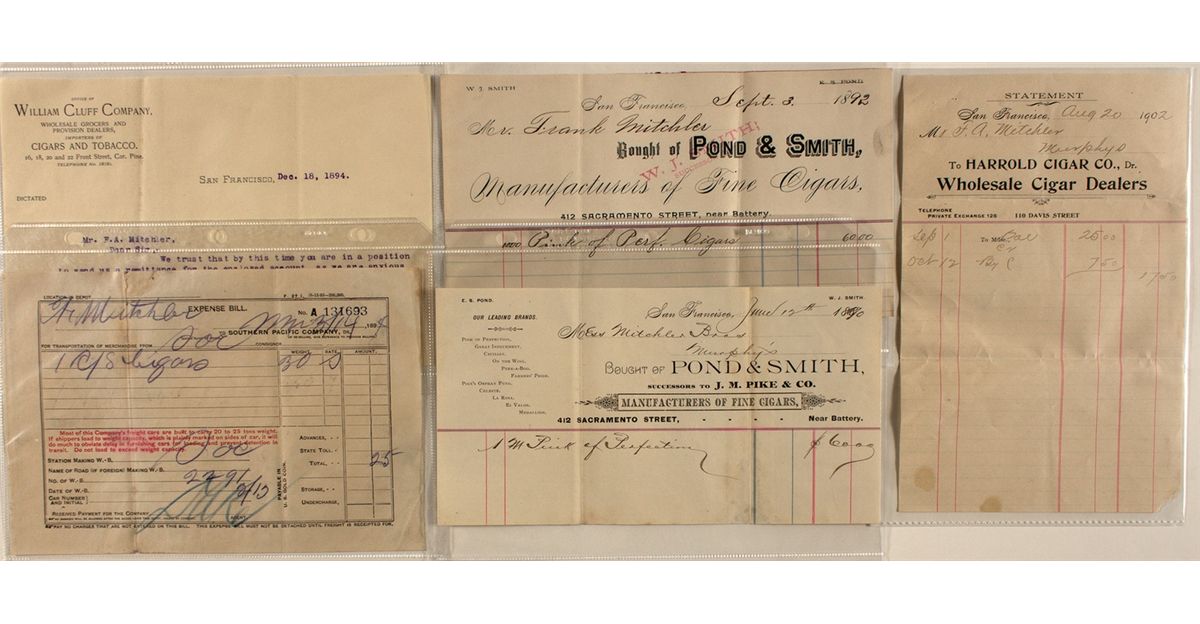 OFFICE OF
WILLIAM CLUFF COMPANY,
WHOLESALE GROCERS AND
PROVISION DEALERS,
IMPORTERS OF
CIGARS AND TOBACCO.
16, 18, 20 and 22 Front Street, Cor. Pine.
SAN FRANCISCO, Dec. 18, 1894.
DICTATED
Mr. F.A. Mitchler,
Dear Sir,
We trust that by this time you are in a position
to send us a remittance for the enclosed account, as we are anxious
LOCATION IN DEPOT
EXPENSE BILL.
No. A 131693
F. Mitchler
189
TO SOUTHERN PACIFIC COMPANY, DR.
FOR TRANSPORTATION OF MERCHANDISE FROM
CONSIGNOR
WEIGHT. RATE. AMOUNT.
1 C/S Cigars 30
Most of this Company's freight cars are built to carry 20 to 25 tons weight.
If shippers load to weight capacity, which is plainly marked on sides of car, it will
do much to obviate delay in furnishing cars for loading and prevent detention in
transit. Do not load to exceed weight capacity.
ADVANCES,
STATE TOLL
STATION MAKING W.-B.
TOTAL, 25
NAME OF ROAD (IF FOREIGN) MAKING W.-B.
NO. OF W.-B.
DATE OF W.-B.
CAR NUMBER AND INITIAL
STORAGE,
UNDERCHARGE,
PAYABLE IN U. S. GOLD COIN.
RECEIVED PAYMENT FOR THE COMPANY
AGENT.
PAY NO CHARGES THAT ARE NOT ENTERED ON THIS BILL. THIS EXPENSE BILL MUST NOT BE DETACHED UNTIL FREIGHT IS RECEIPTED FOR.
W. J. SMITH
E. S. POND.
San Francisco, Sept. 3 1892
Mr. Frank Mitchler
Bought of POND & SMITH,
W. J. SMITH,
Manufacturers of Fine Cigars,
412 SACRAMENTO STREET, near Battery.
1000 Pink of Perf. Cigars 6000
E. S. POND.
W. J. SMITH.
OUR LEADING BRANDS.
San Francisco, June 12th 1890
Mess Mitchler Bros
Murphy's
PINK OF PERFECTION,
GREAT INDUCEMENT,
CECILIAN,
ON THE WING,
PEEK-A-BOO,
FARMERS' PRIDE,
POLI'S OSPRAY PUNG,
CELESTE,
LA ROSA,
EL VALOR,
MEDALLION.
BOUGHT OF POND & SMITH,
SUCCESSORS TO J. M. PIKE & CO.
MANUFACTURERS OF FINE CIGARS,
412 SACRAMENTO STREET, - - - - Near Battery.
1 M Pink of Perfection $6000
STATEMENT
San Francisco, Aug 20 1902
Mr F. A. Mitchler
Murphys
To HARROLD CIGAR CO., Dr.
Wholesale Cigar Dealers
TELEPHONE
PRIVATE EXCHANGE 128
110 DAVIS STREET
Sep 1 To Mdse Bal 2500
Cr
Oct 12 By C 750
1750